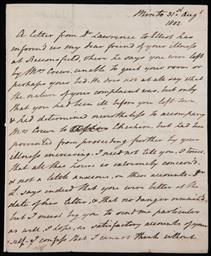 Minto 31st Augt
1802
A letter from Dr Lawrence to Elliot has
informed us my dear friend of your illness
at Beconsfield, where he says you were left
by Mrs Crewe, unable to quit your room or
perhaps your bed. He does not at all say what
the nature of your complaint was, but only
that you had been ill before you left town
& had determined nevertheless to accompany
Mrs Crewe to Cheshire, but had been
prevented from proceeding further by your
illness increasing. I need not tell you, I trust,
that all this house is extremely concern'd,
& not a little anxious, on this account. Dr
L. says indeed that you were better at the
date of his letter, & that no danger remain'd,
but I must beg you to send me particular
as well, I hope, as satisfactory accounts of your
self. I confess that I cannot think without